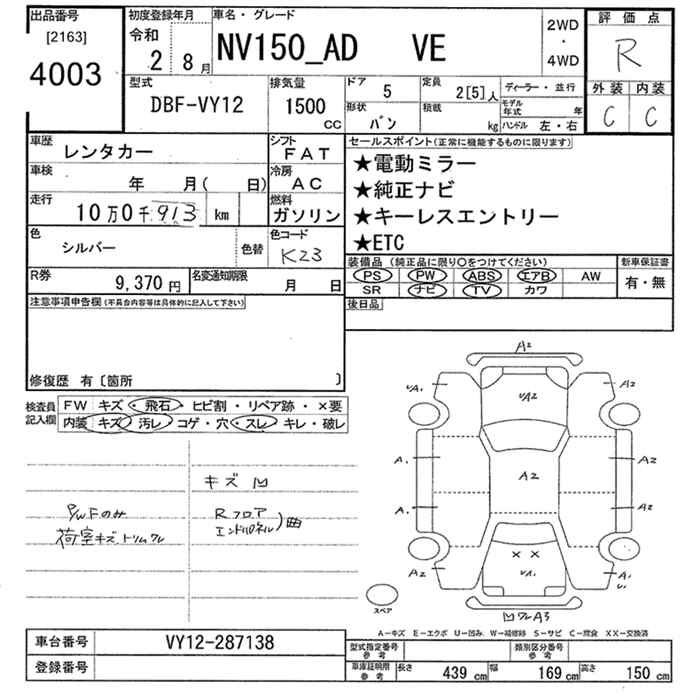 出品番号
[2163]
4003
初度登録年月
令和
2 8月
車名・グレード
NV150_AD VE
2WD
・
4WD
評価点
R
外装 内装
C C
型式
DBF-VY12
排気量
1500
CC
ドア
5
定員
2[5]人
ディーラー・並行
形状
バン
積載
kg
モデル年式 年
ハンドル 左・右
車歴
レンタカー
シフト
FAT
車検
年 月( 日)
冷房
AC
走行
10万0千913 km
燃料
ガソリン
色
シルバー
色替
色コード
K23
R券
9,370円
名変通知期限
月 日
セールスポイント(正常に機能するものに限ります)
★電動ミラー
★純正ナビ
★キーレスエントリー
★ETC
装備品 (純正品に限り○をつけてください)
PS PW ABS エアB AW
SR ナビ TV カワ
新車保証書
有・無
後日品
注意事項申告欄(不具合内容等は具体的に記入して下さい)
修復歴 有〔箇所 〕
検査員
記入欄
FW キズ・飛石・ヒビ割・リペア跡・×要
内装 キズ・汚レ・コゲ・穴・スレ・キレ・破レ
キズ 凹
P/WFのみ
荷室キズトリムワレ
Rフロア
エンドパネル)曲
A2
A2
A2
A2
A.
A2
A.
A2
A2
A1
××
凹ワレA3
スペア
A−キズ E−エクボ U−凹み W−補修跡 S−サビ C−腐食 XX−交換済
車台番号
VY12-287138
登録番号
型式指定番号
参考
類別区分番号
参考
車庫証明用
参考
長さ 439 cm 幅 169 cm 高さ 150 cm